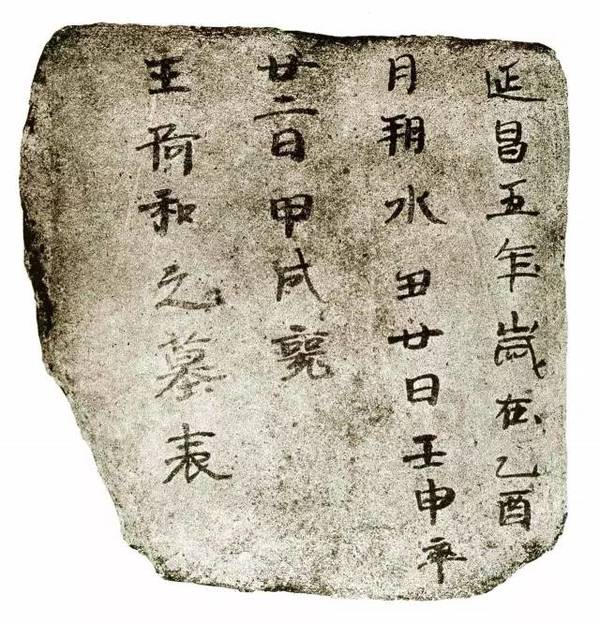 延昌五年歲在乙酉
月朔水丑廿日壬申卒
廿二日甲戌
王阿和之墓表